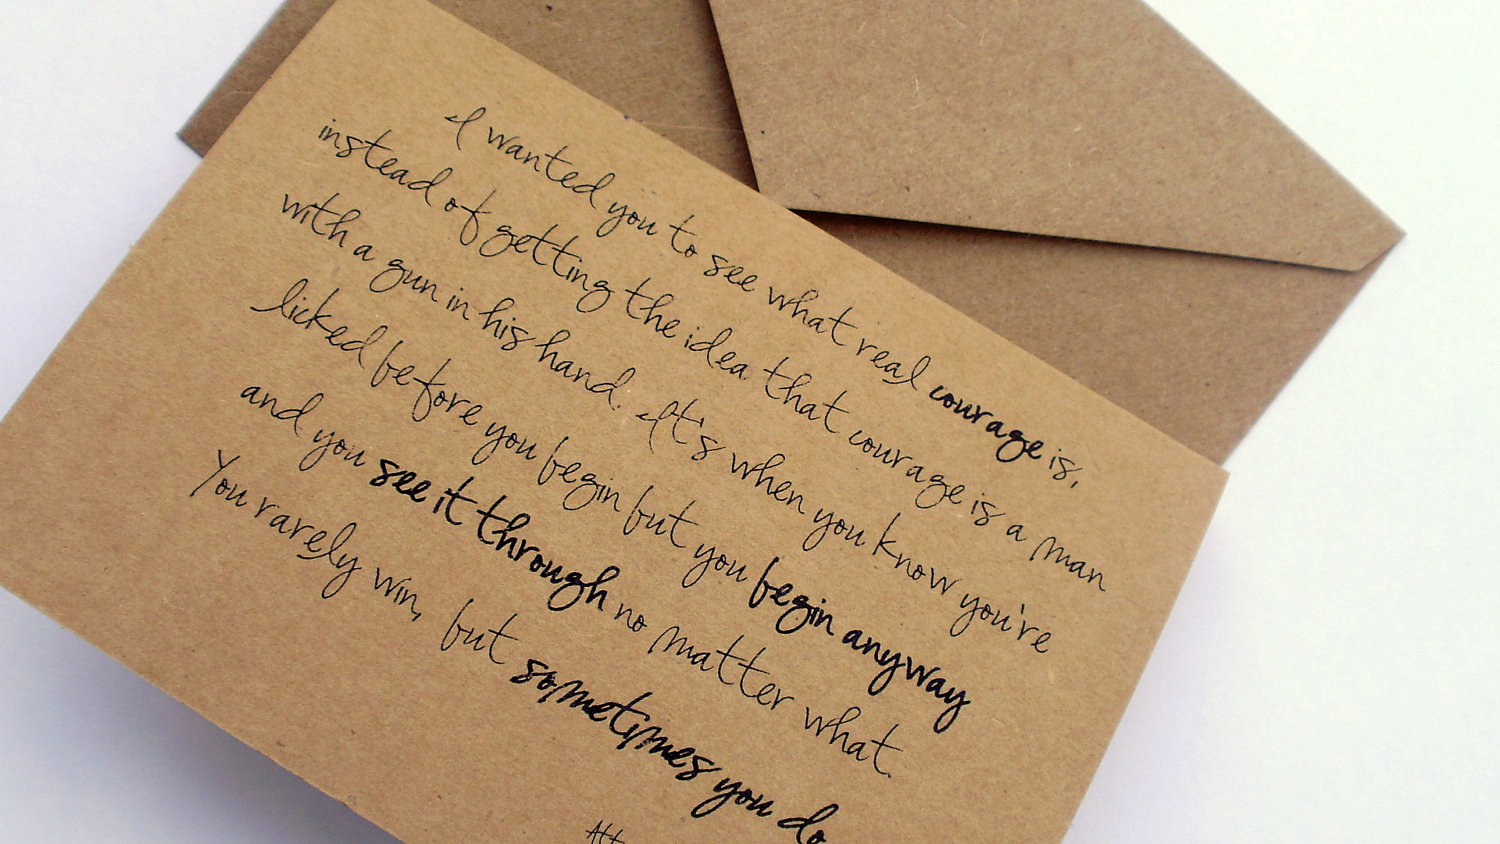 I wanted you to see what real courage is,
instead of getting the idea that courage is a man
with a gun in his hand. It's when you know you're
licked before you begin but you begin anyway
and you see it through no matter what.
You rarely win, but sometimes you do